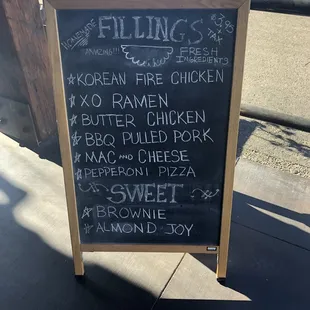 FILLINGS
$3.95
+TAX
AMAZING!!!
FRESH
INGREDIENTS
KOREAN FIRE CHICKEN
XO RAMEN
BUTTER CHICKEN
BBQ PULLED PORK
MAC AND CHEESE
PEPPERONI PIZZA
SWEET
BROWNIE
ALMOND JOY